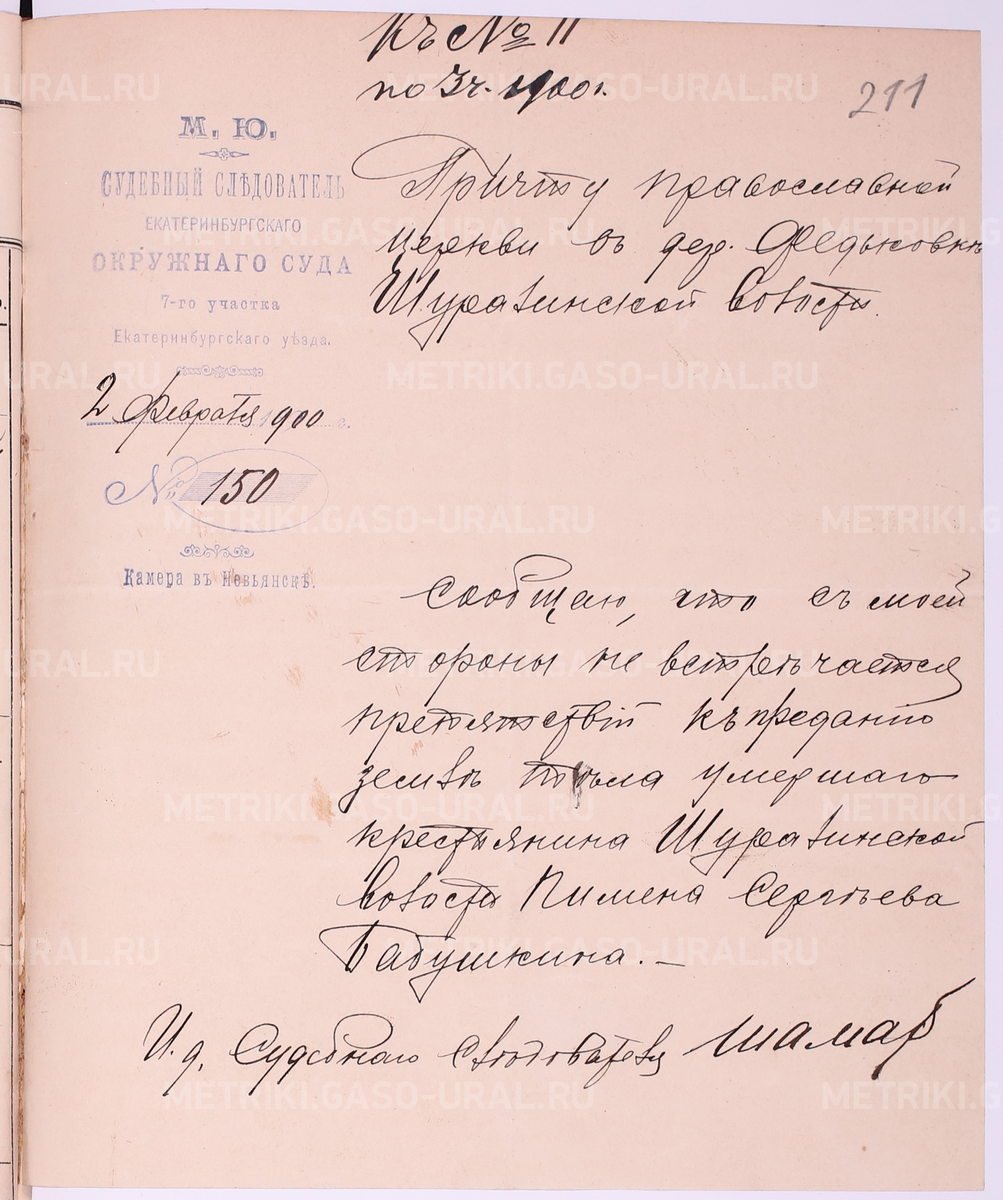 Къ № 11
по 3 ч. 1900 г.
211
М. Ю.
СУДЕБНЫЙ СЛѢДОВАТЕЛЬ
ЕКАТЕРИНБУРГСКАГО
ОКРУЖНАГО СУДА
7-го участка
Екатеринбургскаго уѣзда.
2 Февраля 1900 г.
№ 150
Камера въ Невьянскѣ.
Причту православной
церкви въ дер. Федьковкѣ
Шуралинской волости.
Сообщаю, что съ моей
стороны не встрѣчается
препятствій къ преданію
землѣ тѣла умершаго
крестьянина Шуралинской
волости Пимена Сергѣева
Бабушкина. —
И. д. Судебнаго Слѣдователя
METRIKI.GASO-URAL.RU